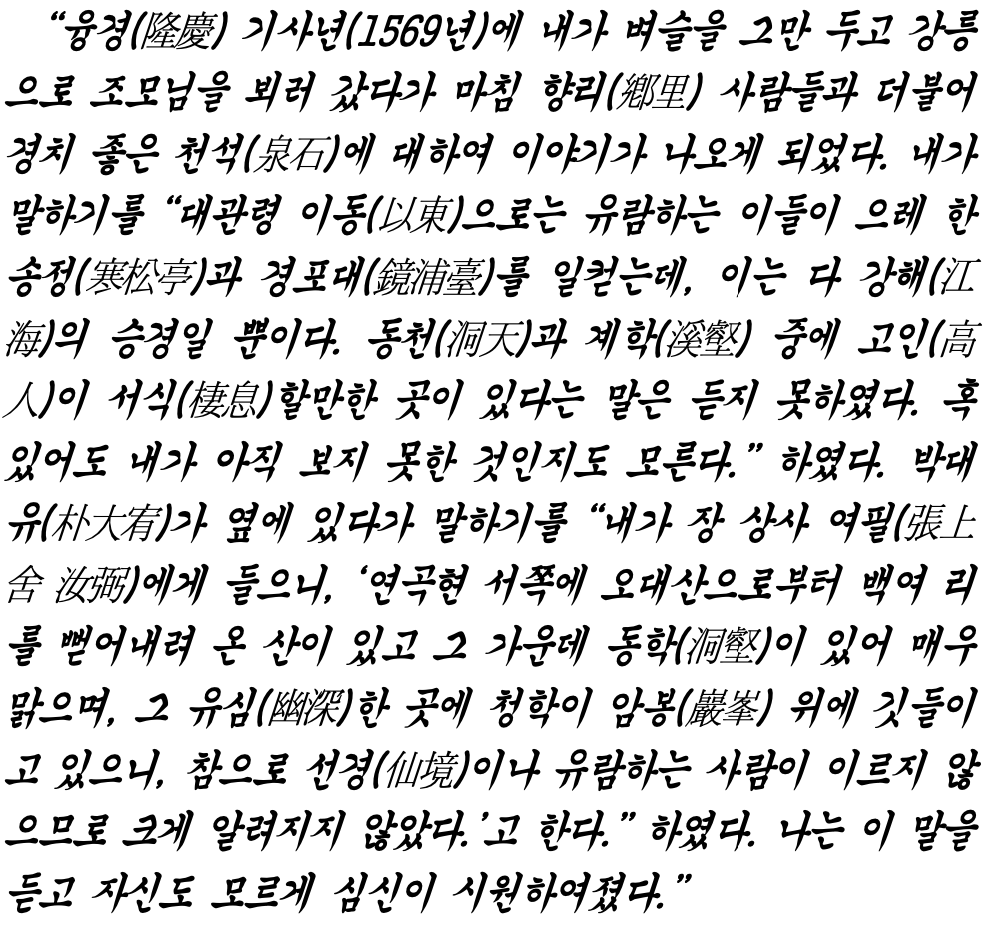 “융경(隆慶) 기사년(1569년)에 내가 벼슬을 그만 두고 강릉
으로 조모님을 뵈러 갔다가 마침 향리(鄕里) 사람들과 더불어
경치 좋은 천석(泉石)에 대하여 이야기가 나오게 되었다. 내가
말하기를 “대관령 이동(以東)으로는 유람하는 이들이 으레 한
송정(寒松亭)과 경포대(鏡浦臺)를 일컫는데, 이는 다 강해(江
海)의 승경일 뿐이다. 동천(洞天)과 계학(溪壑) 중에 고인(高
人)이 서식(棲息)할만한 곳이 있다는 말은 듣지 못하였다. 혹
있어도 내가 아직 보지 못한 것인지도 모른다.” 하였다. 박대
유(朴大宥)가 옆에 있다가 말하기를 “내가 장 상사 여필(張上
舍 汝弼)에게 들으니, ‘연곡현 서쪽에 오대산으로부터 백여 리
를 뻗어내려 온 산이 있고 그 가운데 동학(洞壑)이 있어 매우
맑으며, 그 유심(幽深)한 곳에 청학이 암봉(巖峯) 위에 깃들이
고 있으니, 참으로 선경(仙境)이나 유람하는 사람이 이르지 않
으므로 크게 알려지지 않았다.’고 한다.” 하였다. 나는 이 말을
듣고 자신도 모르게 심신이 시원하여졌다.”